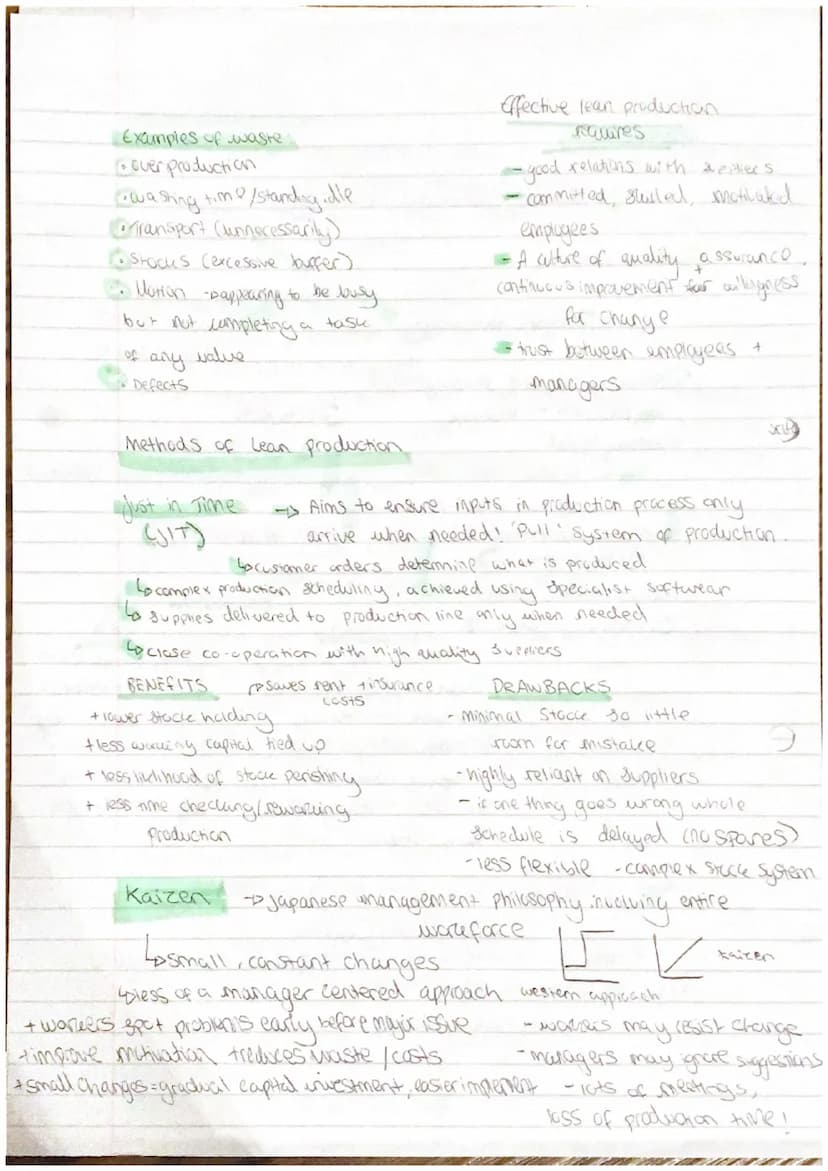 Examples of waste
• over production
• wasting time/standing idle
• Transport (unnecessarily)
• Stocks (excessive buffer)
• Motion → appearing to be busy
but not completing a task
of any value
• Defects
Effective lean production
requires
- good relations with
- committed, skilled, motivated
employees
- A culture of quality assurance.
continuous improvement + willingness
for change
- trust between employees +
managers
Methods of Lean production
Just in Time → Aims to ensure inputs in production process only
(JIT) arrive when needed! 'Pull' system of production.
↳ customer orders determine what is produced
↳ complex production scheduling, achieved using specialist softwear
↳ Supplies delivered to production line only when needed
↳ close co-operation with high quality suppliers
BENEFITS → saves rent + insurance
costs
+ lower stock holding
+ less working capital tied up
+ less liklihood of stock perishing
+ less time checking/reworking
production
DRAWBACKS
- Minimal Stock so little
room for mistake
- highly reliant on suppliers
- if one thing goes wrong whole
schedule is delayed (no spares)
- less flexible - complex stock system
Kaizen → Japanese management philosophy involving entire
workforce
↳ small, constant changes
kaizen
↳ less of a manager centered approach western approach
+ workers spot problems early before major issue
+ improve motivation + reduces waste / costs
+ small changes = gradual capital investment, easier implement
- workers may resist change
- managers may ignore suggestions
- lots of meetings,
loss of production time!